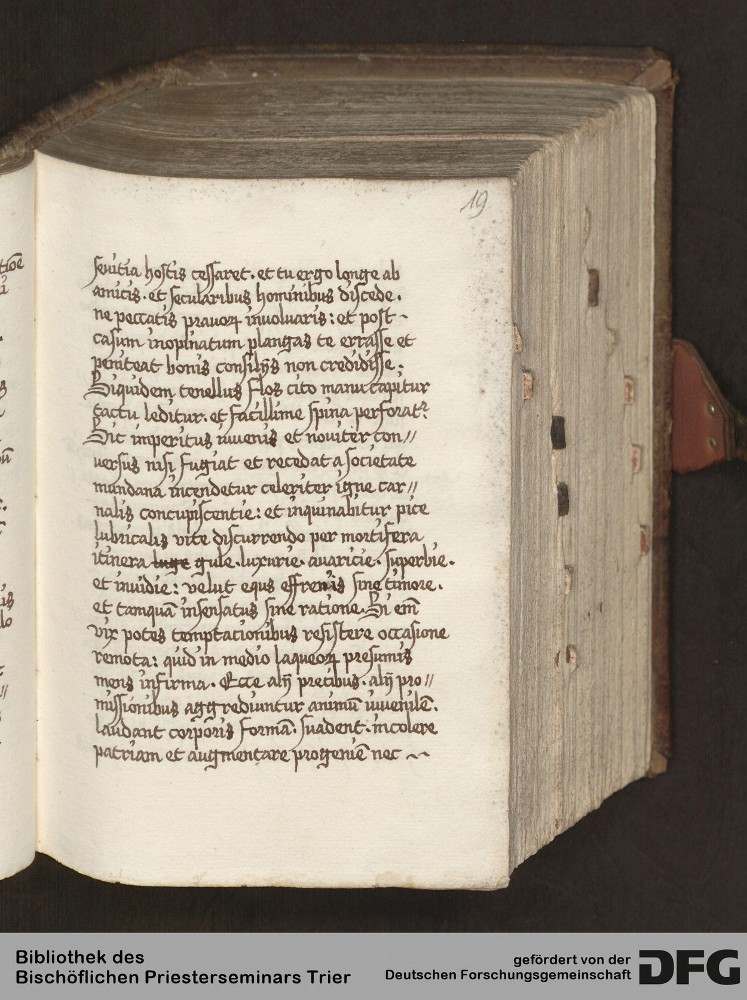 19
seuitia hostis cessaret. et tu ergo longe ab
amicis. et secularibus hominibus discede.
ne peccatis prauoꝝ inuoluaris: et post-
casum inopinatum plangas te errasse et
peniteat bonis consilijs non credidisse;
Siquidem tenellus flos cito manu capitur
tactu leditur. et facillime spina perforat᷑
Sic imperitus iuuenis et nouiter con//
uersus nisi fugiat et recedat a societate
mundana incendetur celeriter igne car//
nalis concupiscentie: et inquinabitur pice
lubricalis vite discurrendo per mortifera
itinera gule. luxurie. auaricie. superbie.
et inuidie: velut equs effrenis sine timore.
et tamquā insensatus sine ratione. Si em̄
vix potes temptacionibus resistere occasione
remota: quid in medio laqueoꝝ presumis
mens infirma. Ecce alij precibus. alij pro//
missionibus aggrediuntur animū iuuenilē.
laudant corporis formā. suadent. incolere
patriam et augmentare progeniē nec ~
tioē
Bibliothek des
Bischöflichen Priesterseminars Trier
gefördert von der
Deutschen Forschungsgemeinschaft
DFG